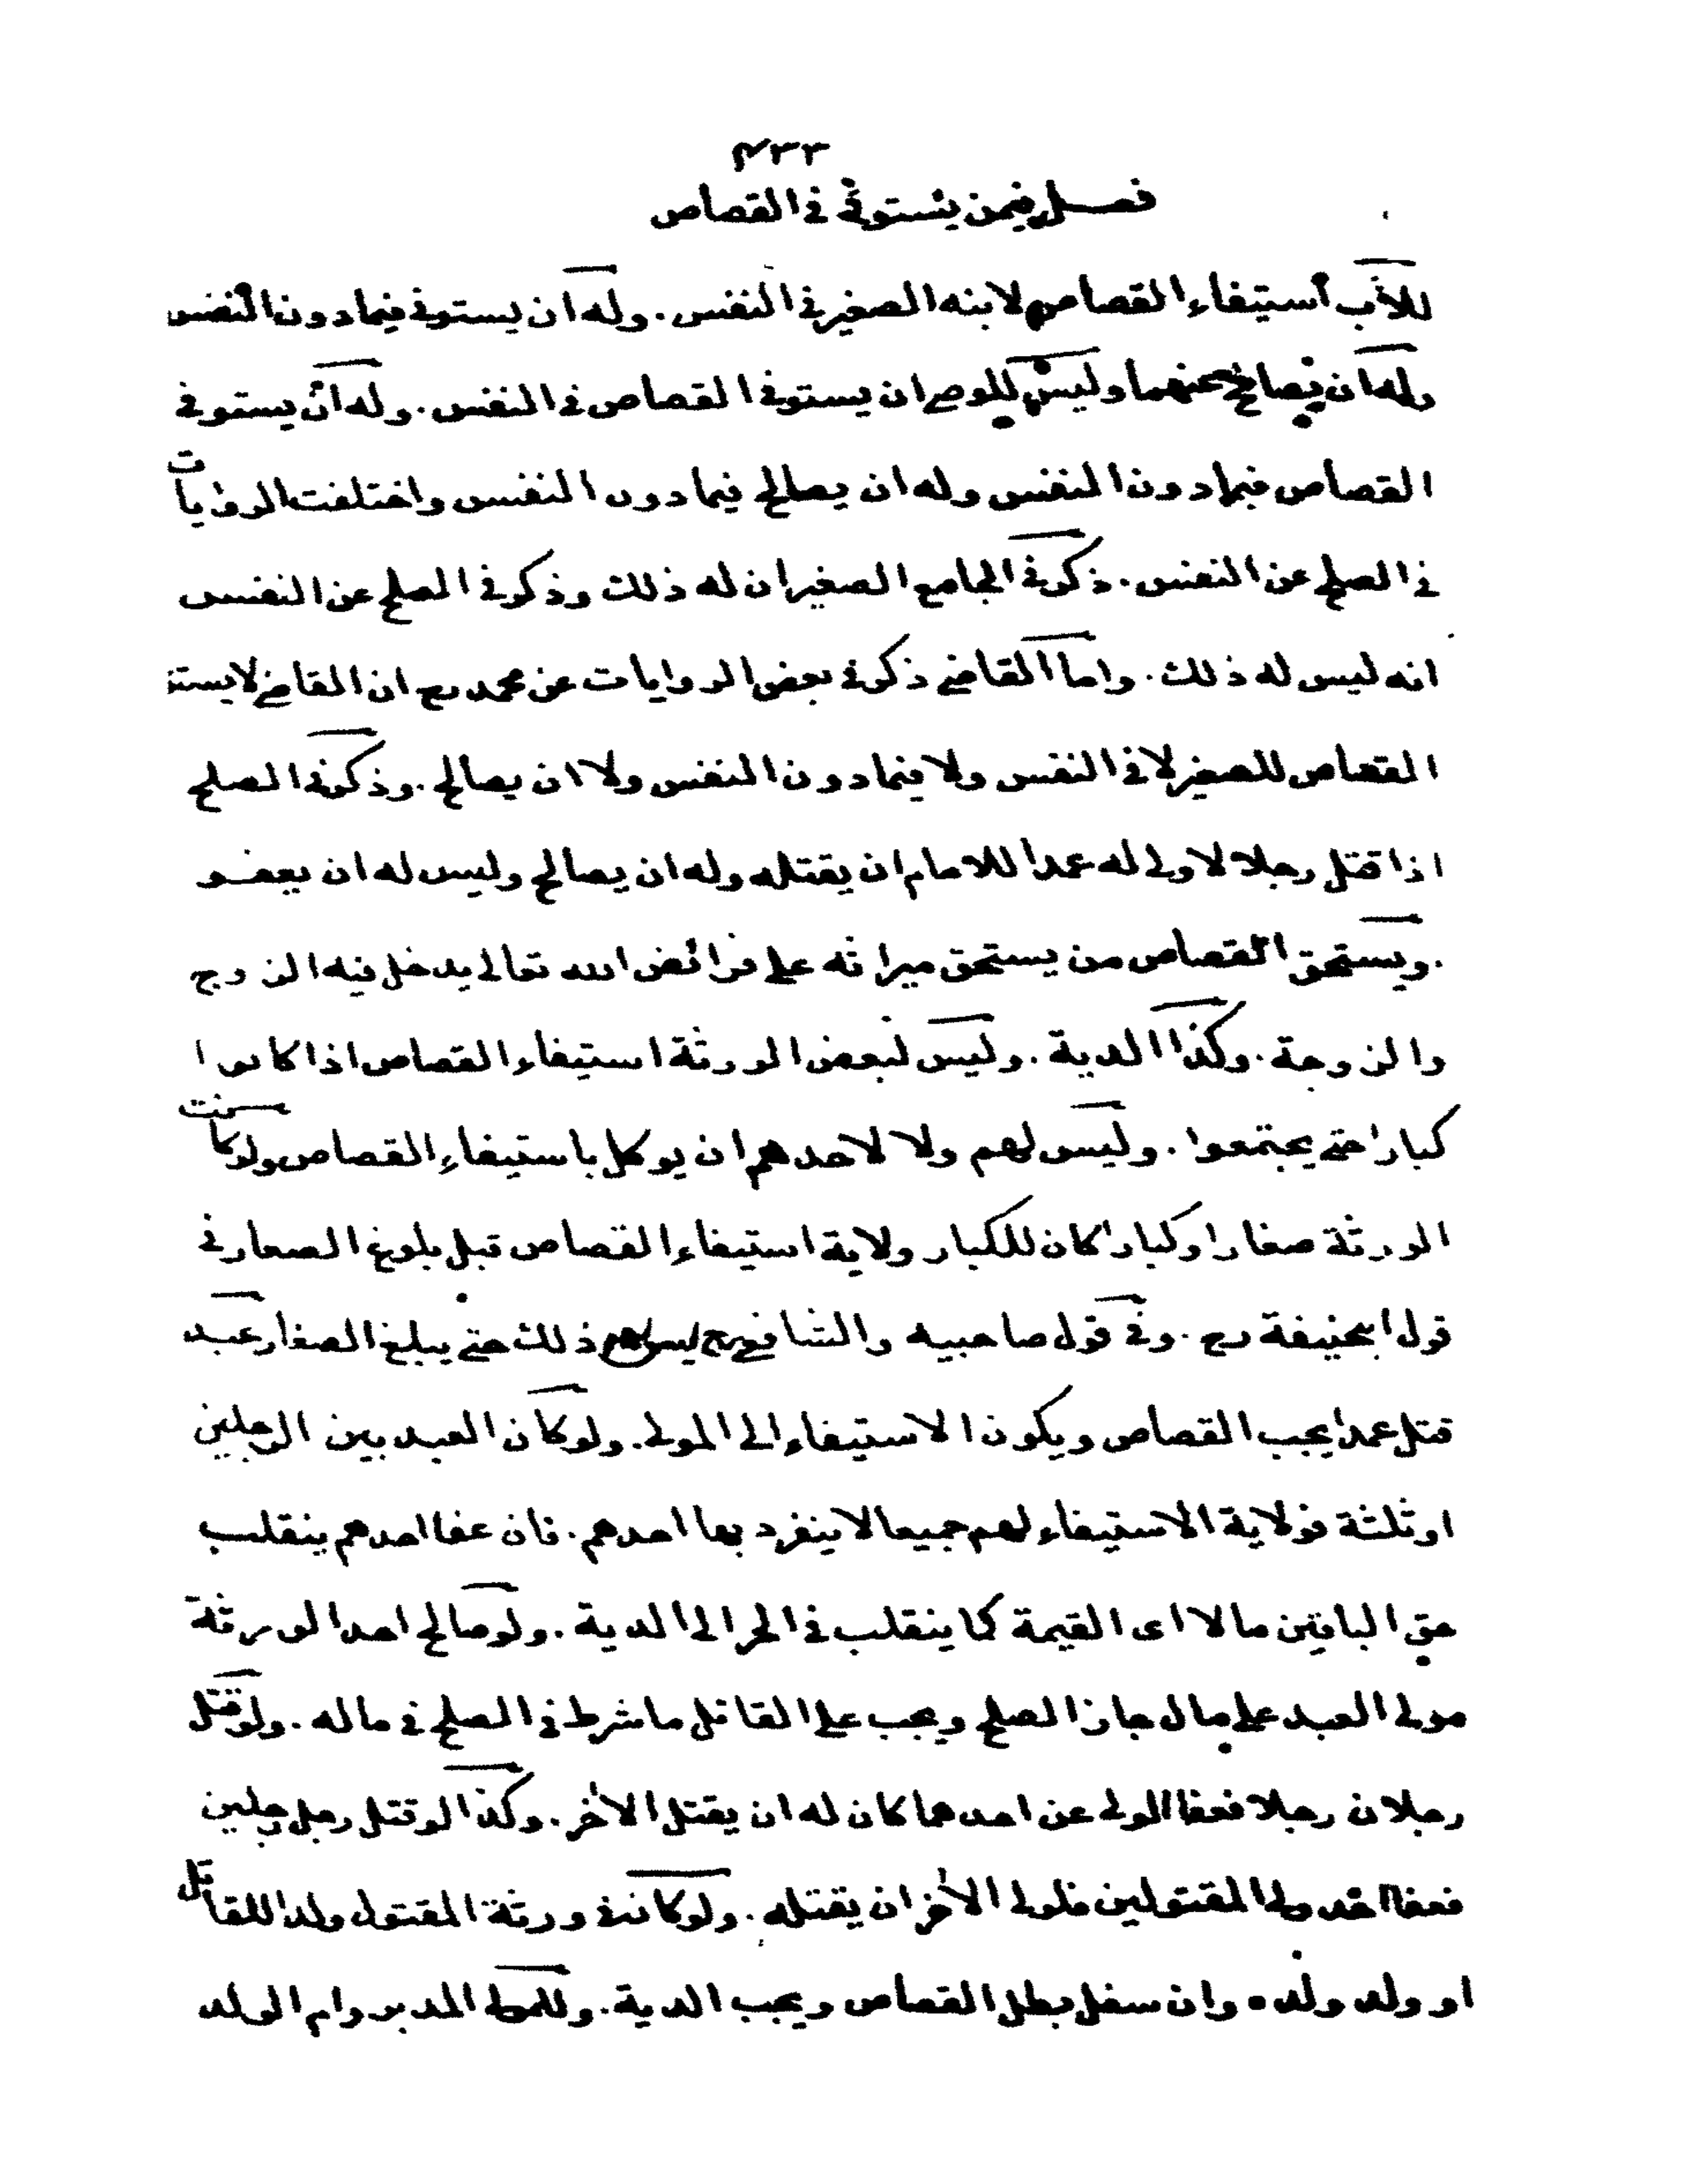 ٤٣٣
فصل فيمن يستوفى فى القصاص
للأب استيفاء القصاص لابنه الصغير فى النفس . وله ان يستوفى فيما دون النفس
وله ان يصالح عنهما وليس للوصى ان يستوفى القصاص فى النفس . وله ان يستوفى
القصاص فيما دون النفس وله ان يصالح فيما دون النفس واختلفت الروايات
فى الصلح عن النفس . ذكر فى الجامع الصغير ان له ذلك وذكر فى الصلح عن النفس
انه ليس له ذلك . واما القاضى ذكر فى بعض الروايات عن محمد رح ان القاضى لا
القصاص للصغير لا فى النفس ولا فيما دون النفس ولا ان يصالح . وذكر فى الصلح
اذا قتل رجلا لا ولى له عمدا للامام ان يقتله وله ان يصالح وليس له ان يعفو
. ويستحق القصاص من يستحق ميراثه على فرائض الله تعالى يدخل فيه الزوج
والزوجة . وكذا الدية . وليس لبعض الورثة استيفاء القصاص اذا كانوا
كبارا حتى يجتمعوا . وليس لهم ولا لاحدهم ان يوكل باستيفاء القصاص ولو كانت
الورثة صغارا وكبارا كان للكبار ولاية استيفاء القصاص قبل بلوغ الصغار فى
قول ابيحنيفة رح . وفى قول صاحبيه والشافعى رح ليس لهم ذلك حتى يبلغ الصغار عبد
قتل عمدا يجب القصاص ويكون الاستيفاء الى المولى . ولو كان العبد بين الرجلين
او ثلثة فولاية الاستيفاء لهم جميعا لا ينفرد بها احدهم . فان عفا احدهم ينقلب
حق الباقين مالا اى القيمة كما ينقلب فى الحر الى الدية . ولو صالح احد الورثة
مولى العبد على مال جاز الصلح ويجب على القاتل ما شرط فى الصلح فى ماله . ولو قتل
رجلان رجلا فعفا المولى عن احدهما كان له ان يقتل الاخر . وكذا لو قتل رجل رجلين
فعفا احد ولى المقتولين فلولى الاخر ان يقتله . ولو كان فى ورثة المقتول ولد القاتل
او ولد ولده وان سفل بطل القصاص ويجب الدية . وللمولى المدبر وام الولد